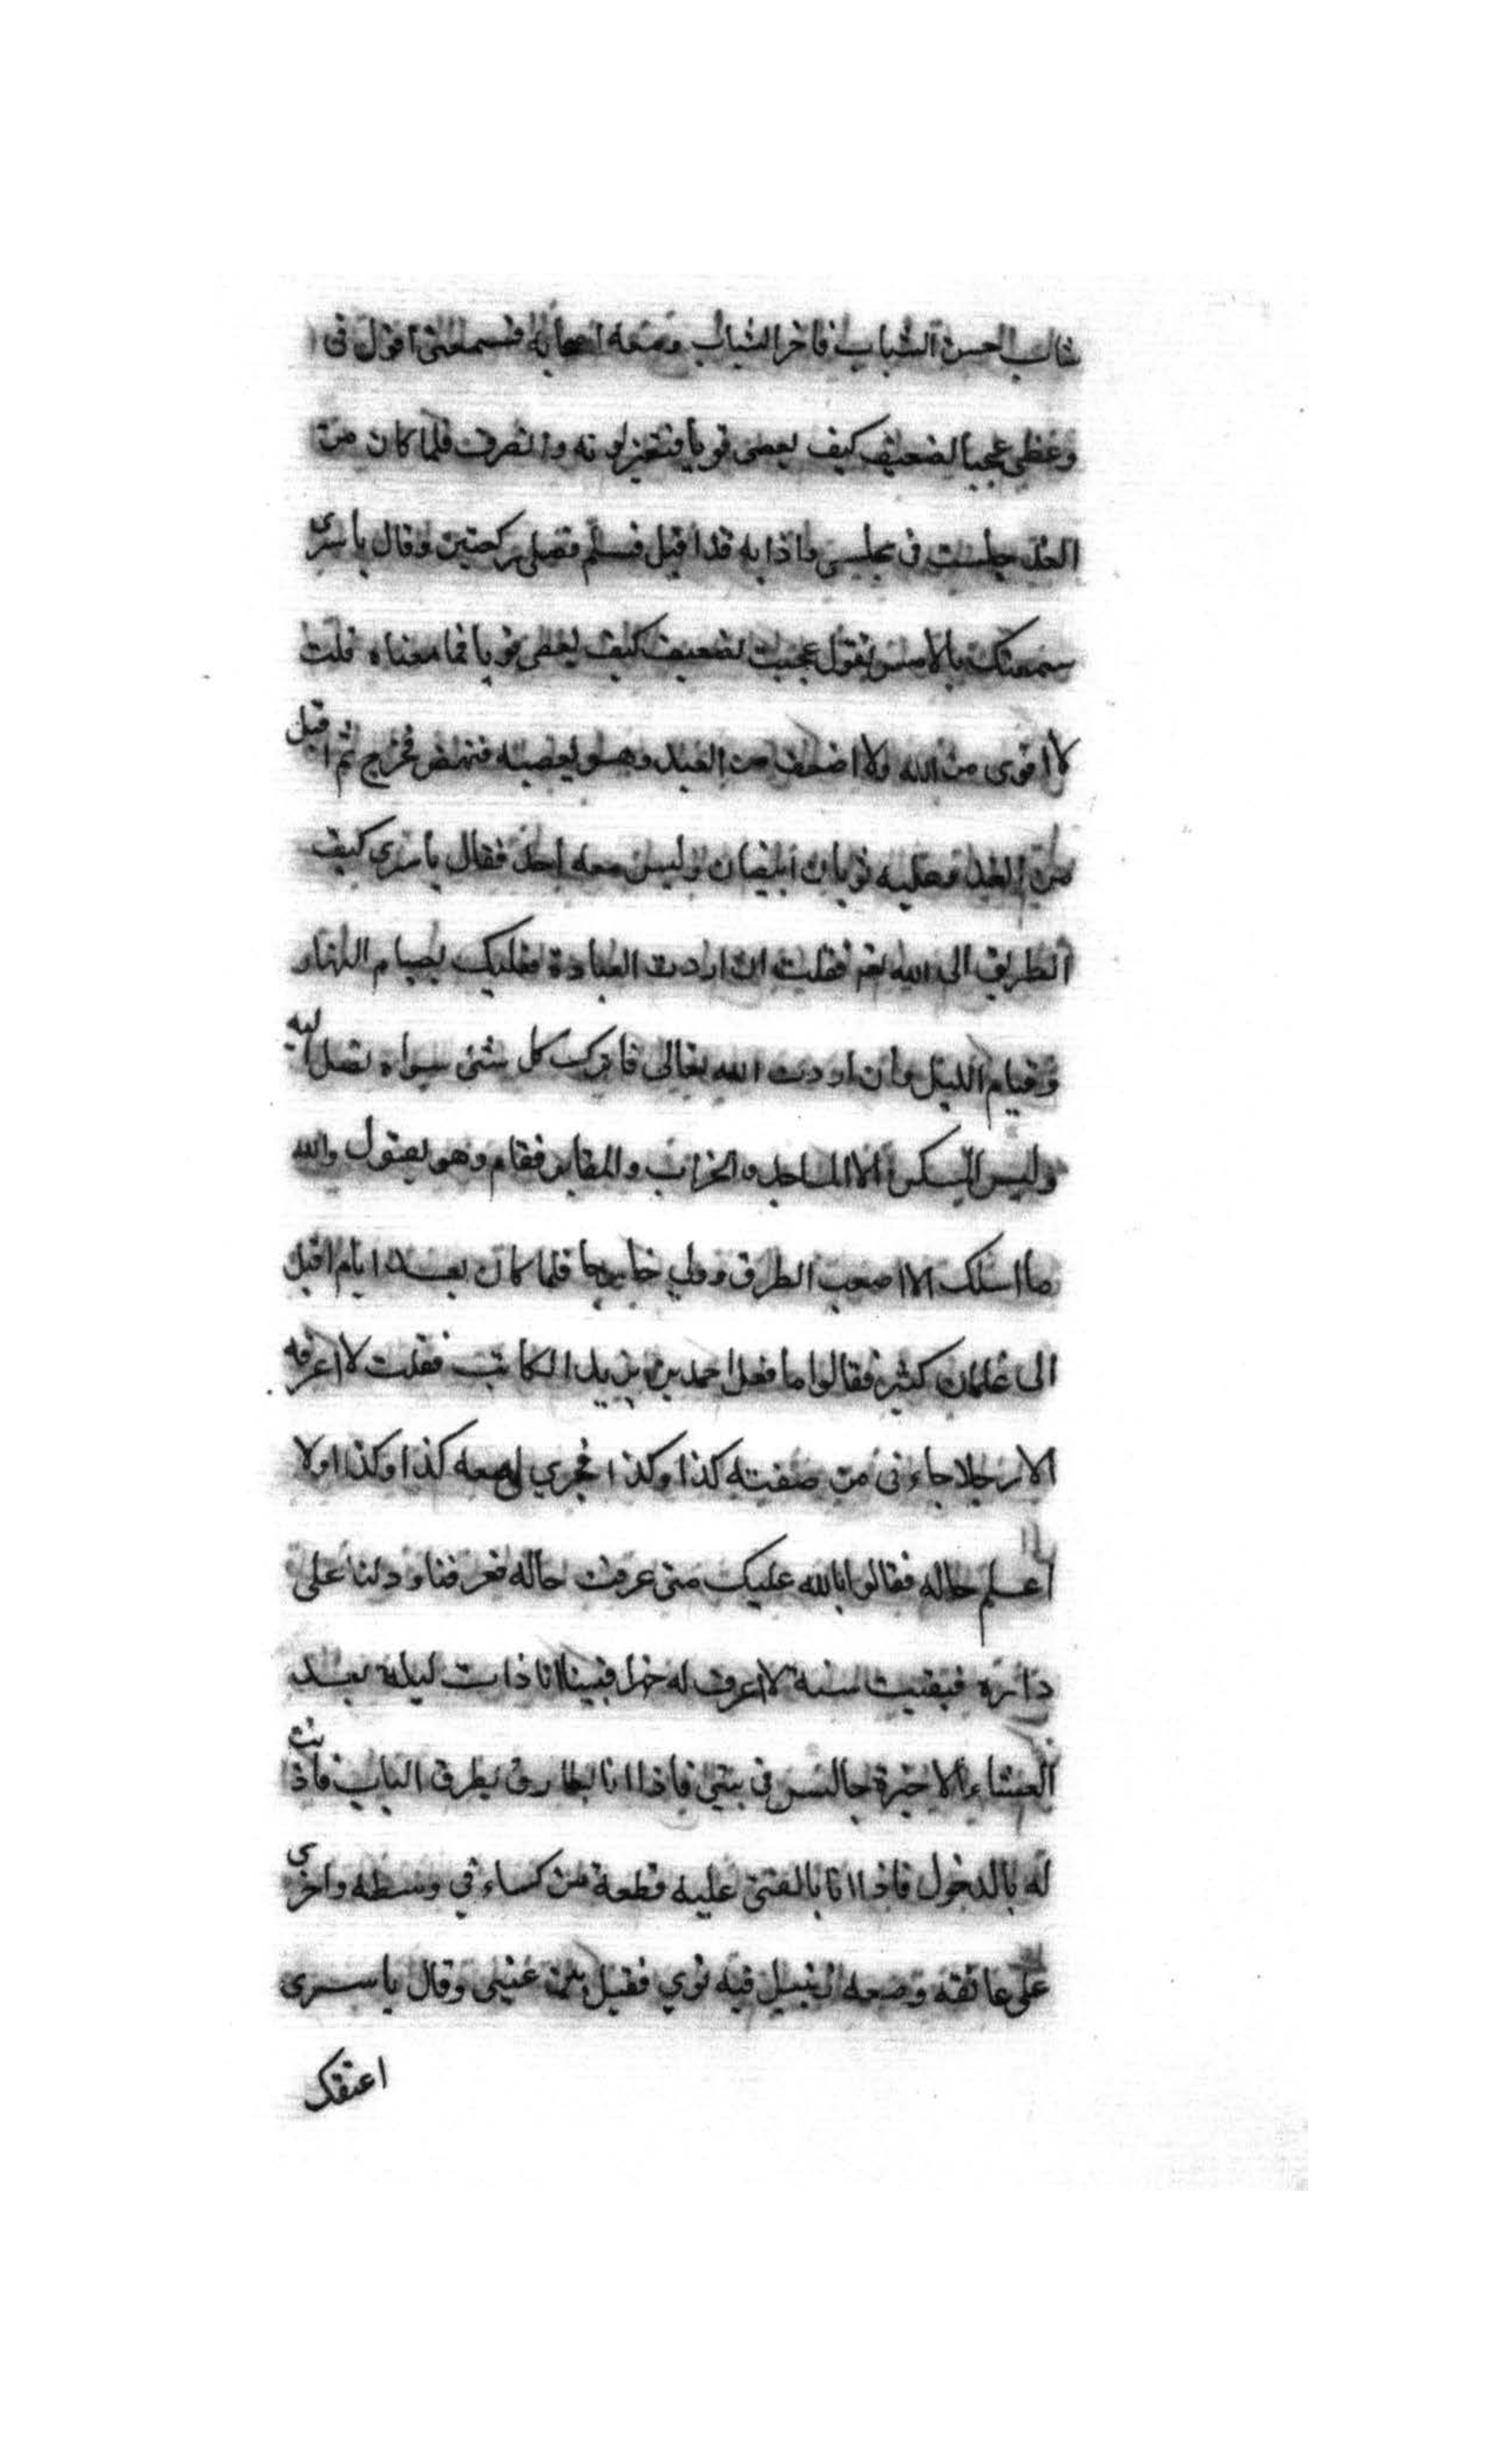 شاب الحسن الشباب فاخر الثياب ومعه اصحابه فسمعنى اقول فى
وعظى عجبا لضعيف كيف يعصى قويا فتغير لونه وانصرف فلما كان من
الغد جلست فى مجلسى واذا به قد اقبل فسلم وصلى ركعتين وقال يا سرى
سمعتك بالامس تقول عجبت لضعيف كيف يعصى قويا فما معناه قلت
لا اقوى من الله ولا اضعف من العبد وهو يعصيه فنهض فخرج ثم اقبل
من الغد وعليه ثوبان ابيضان وليس معه احد فقال يا سرى كيف
الطريق الى الله نعم فقلت ان اردت العبادة فعليك بصيام النهار
وقيام الليل وان اردت الله تعالى فاترك كل شئ سواه تصل اليه
وليس المسكن الا المساجد والخراب والمقابر فقام وهو يقول والله
ما اسلك الا اصعب الطرق وولى خارجا فلما كان بعد ايام اقبل
الى غلمان كثير فقالوا ما فعل احمد بن يزيد الكاتب فقلت لا اعرفه
الا رجلا جاءنى من صفته كذا وكذا فجرى لى معه كذا وكذا ولا
اعلم حاله فقالوا بالله عليك متى عرفت حاله فعرفنا ودلنا على
دائره فبقيت سنة لا اعرف له خبرا فبينا انا ذات ليلة بعد
العشاء الاخيرة جالس فى بيتى فاذا انا بطارق يطرق الباب فاذنت
له بالدخول فاذا انا بالفتى عليه قطعة من كساء فى وسطه واخرى
على عاتقه ومعه زنبيل فيه نوى فقبل بين عينى وقال يا سرى
اعتقك